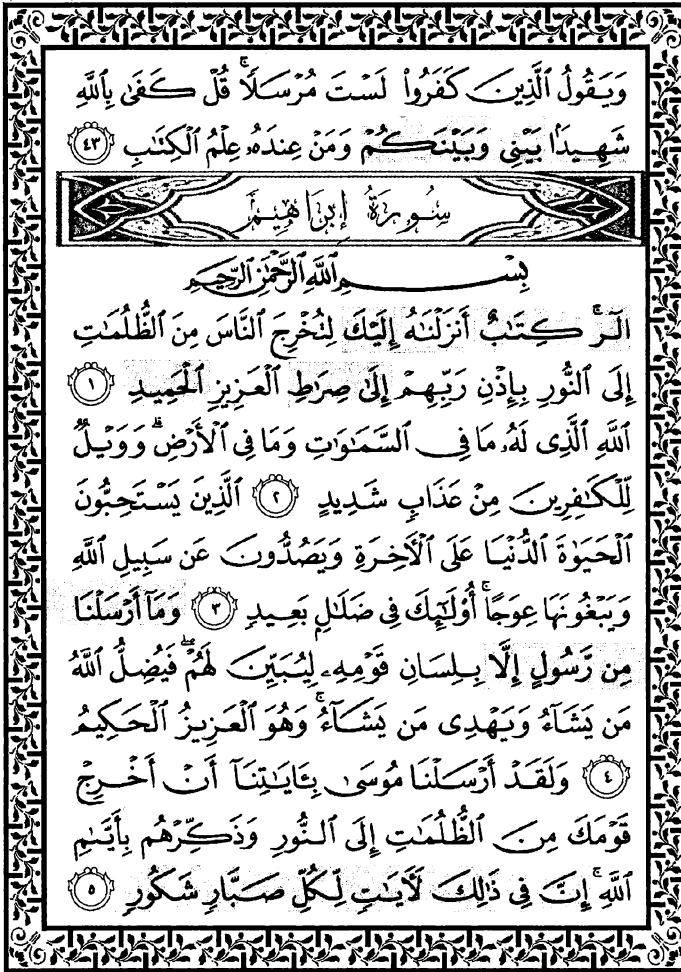 وَيَقُولُ ٱلَّذِينَ كَفَرُوا۟ لَسْتَ مُرْسَلًا ۚ قُلْ كَفَىٰ بِٱللَّهِ
شَهِيدًۢا بَيْنِى وَبَيْنَكُمْ وَمَنْ عِندَهُۥ عِلْمُ ٱلْكِتَٰبِ ٤٣
سُورَةُ إِبْرَاهِيمَ
بِسْمِ ٱللَّهِ ٱلرَّحْمَٰنِ ٱلرَّحِيمِ
الٓر ۚ كِتَٰبٌ أَنزَلْنَٰهُ إِلَيْكَ لِتُخْرِجَ ٱلنَّاسَ مِنَ ٱلظُّلُمَٰتِ
إِلَى ٱلنُّورِ بِإِذْنِ رَبِّهِمْ إِلَىٰ صِرَٰطِ ٱلْعَزِيزِ ٱلْحَمِيدِ ١
ٱللَّهِ ٱلَّذِى لَهُۥ مَا فِى ٱلسَّمَٰوَٰتِ وَمَا فِى ٱلْأَرْضِ ۗ وَوَيْلٌ
لِّلْكَٰفِرِينَ مِنْ عَذَابٍ شَدِيدٍ ٢ ٱلَّذِينَ يَسْتَحِبُّونَ
ٱلْحَيَوٰةَ ٱلدُّنْيَا عَلَى ٱلْءَاخِرَةِ وَيَصُدُّونَ عَن سَبِيلِ ٱللَّهِ
وَيَبْغُونَهَا عِوَجًا ۚ أُو۟لَٰٓئِكَ فِى ضَلَٰلٍۭ بَعِيدٍ ٣ وَمَآ أَرْسَلْنَا
مِن رَّسُولٍ إِلَّا بِلِسَانِ قَوْمِهِۦ لِيُبَيِّنَ لَهُمْ ۖ فَيُضِلُّ ٱللَّهُ
مَن يَشَآءُ وَيَهْدِى مَن يَشَآءُ ۚ وَهُوَ ٱلْعَزِيزُ ٱلْحَكِيمُ
٤ وَلَقَدْ أَرْسَلْنَا مُوسَىٰ بِـَٔايَٰتِنَآ أَنْ أَخْرِجْ
قَوْمَكَ مِنَ ٱلظُّلُمَٰتِ إِلَى ٱلنُّورِ وَذَكِّرْهُم بِأَيَّىٰمِ
ٱللَّهِ ۚ إِنَّ فِى ذَٰلِكَ لَءَايَٰتٍ لِّكُلِّ صَبَّارٍ شَكُورٍ ٥